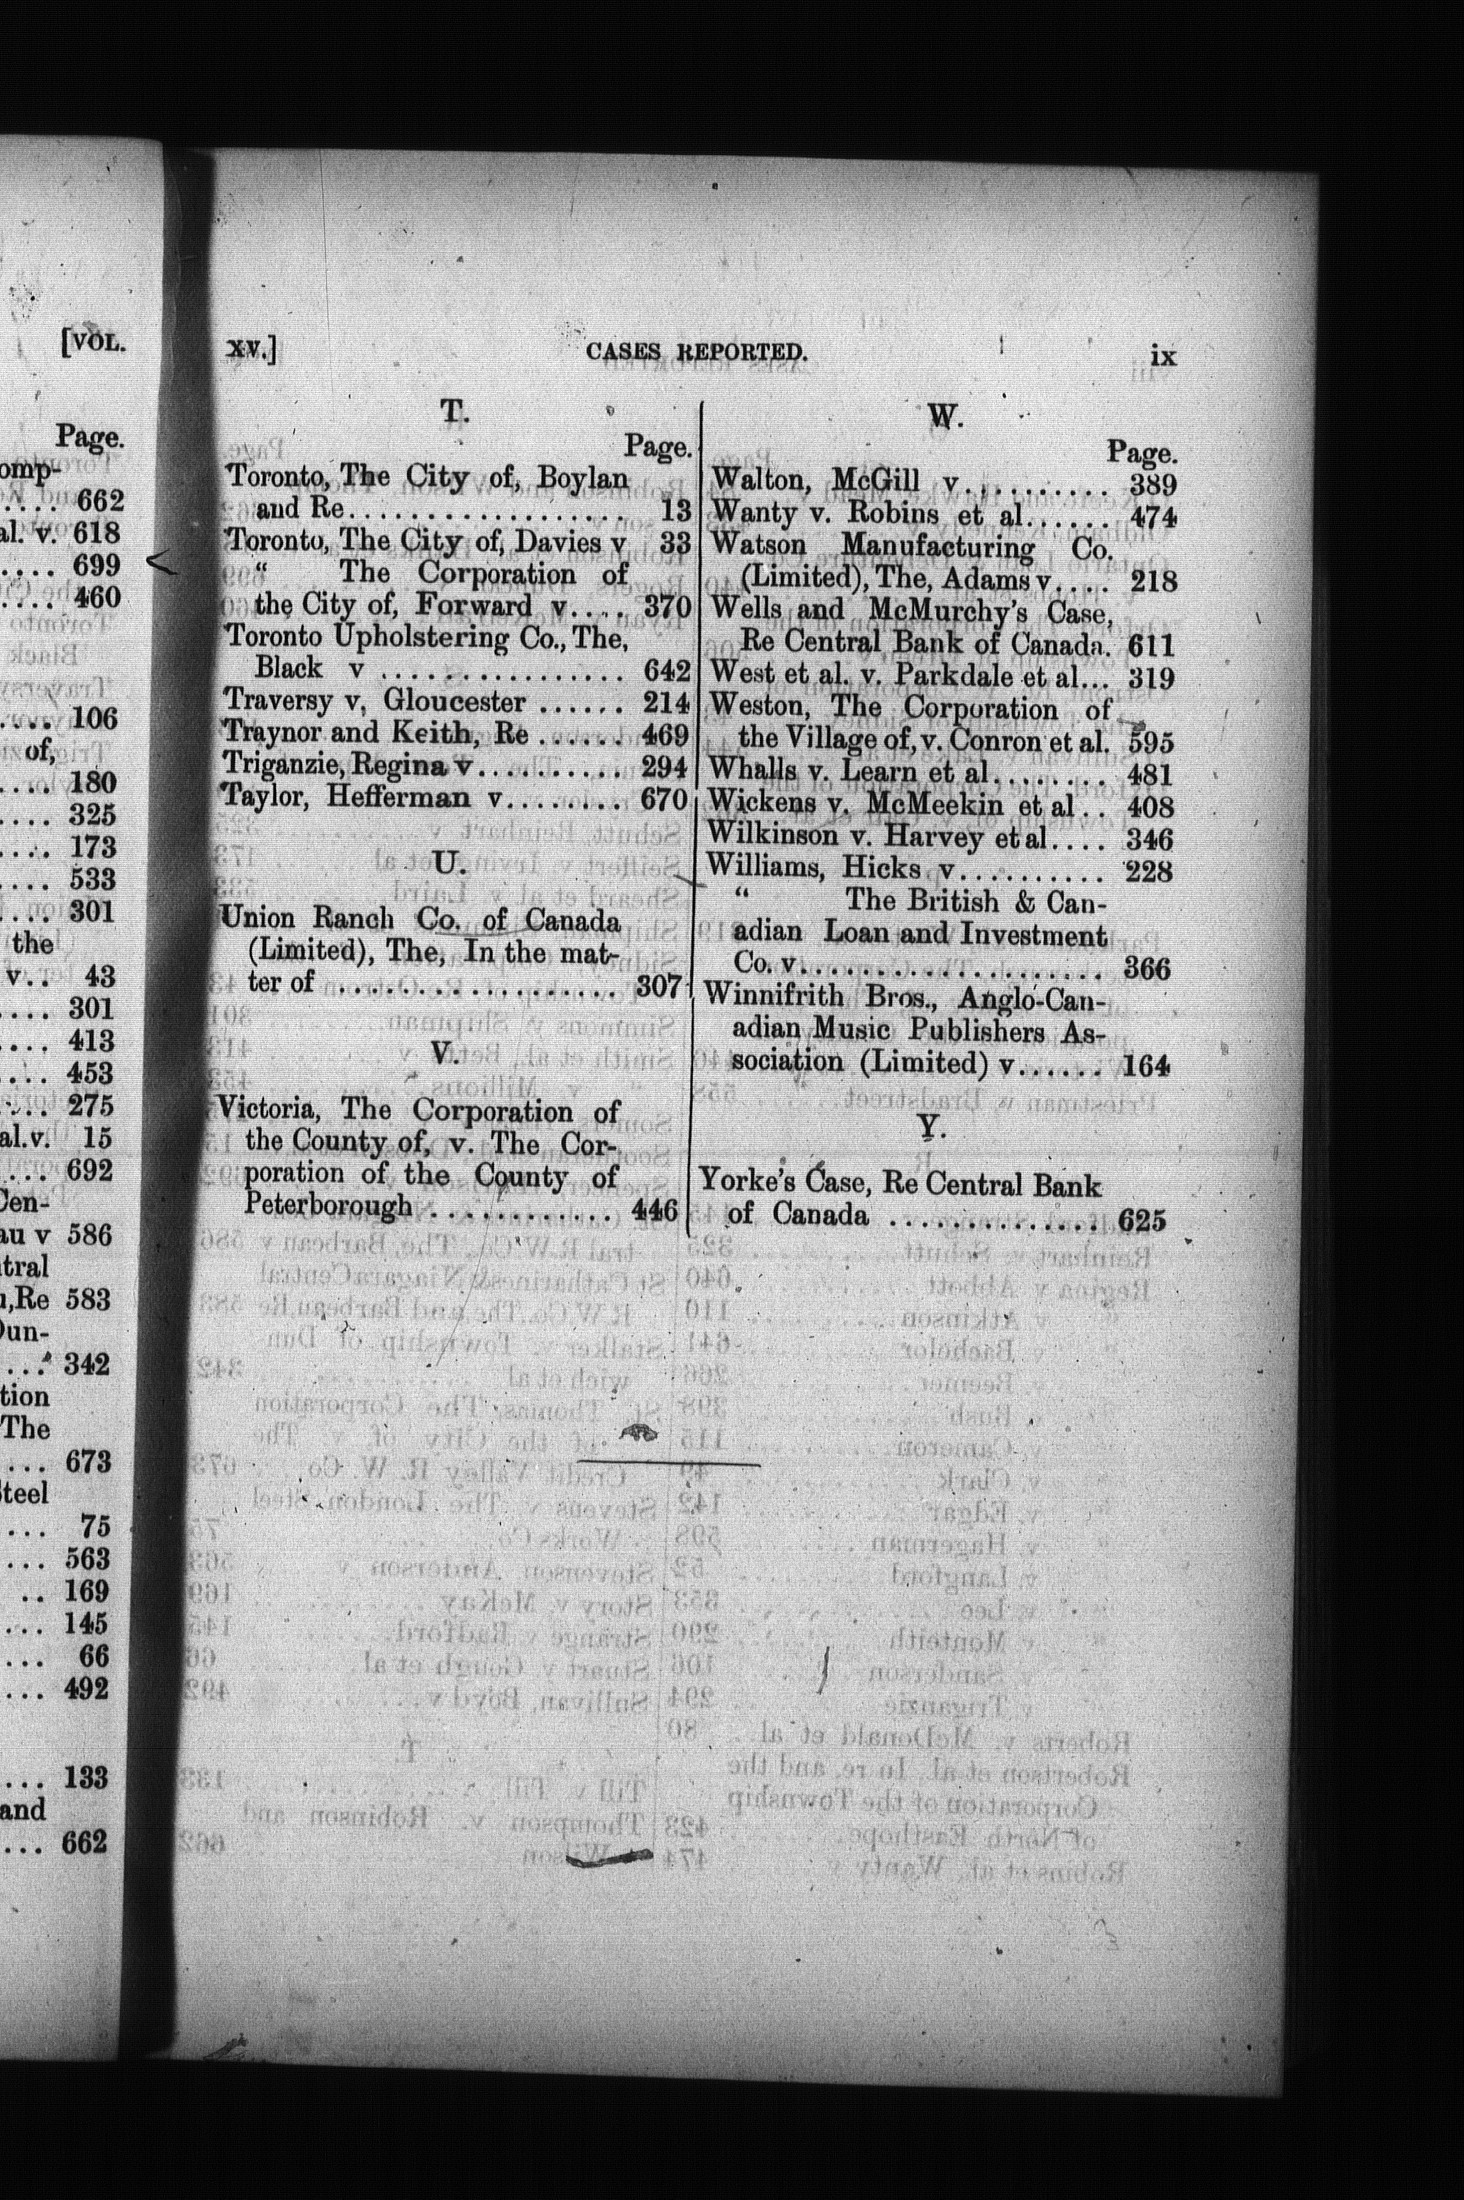 [VOL.
Page.
omp-
.... 662
al. v. 618
.... 699
.... 460
... 106
of,
.... 180
.... 325
.... 173
.... 533
.... 301
the
v.. 43
.... 301
.... 413
.... 453
.... 275
al.v. 15
.... 692
Cen-
au v 586
tral
u,Re 583
Dun-
.... 342
tion
The
.... 673
Steel
... 75
... 563
.. 169
... 145
... 66
... 492
... 133
and
... 662
XV.] CASES REPORTED. ix
T.
Page.
Toronto, The City of, Boylan
and Re.................. 13
Toronto, The City of, Davies v 33
“ The Corporation of
the City of, Forward v.... 370
Toronto Upholstering Co., The,
Black v ................ 642
Traversy v. Gloucester ...... 214
Traynor and Keith, Re ...... 469
Triganzie, Regina v.......... 294
Taylor, Hefferman v........ 670
U.
Union Ranch Co. of Canada
(Limited), The, In the mat-
ter of .................. 307
V.
Victoria, The Corporation of
the County of, v. The Cor-
poration of the County of
Peterborough ............ 446
W.
Page.
Walton, McGill v.......... 389
Wanty v. Robins et al...... 474
Watson Manufacturing Co.
(Limited), The, Adams v.... 218
Wells and McMurchy's Case,
Re Central Bank of Canada. 611
West et al. v. Parkdale et al... 319
Weston, The Corporation of
the Village of, v. Conron et al. 595
Whalls v. Learn et al........ 481
Wickens v. McMeekin et al.. 408
Wilkinson v. Harvey et al.... 346
Williams, Hicks v.......... 228
“ The British & Can-
adian Loan and Investment
Co. v.................... 366
Winnifrith Bros., Anglo-Can-
adian Music Publishers As-
sociation (Limited) v...... 164
Y.
Yorke's Case, Re Central Bank
of Canada .............. 625